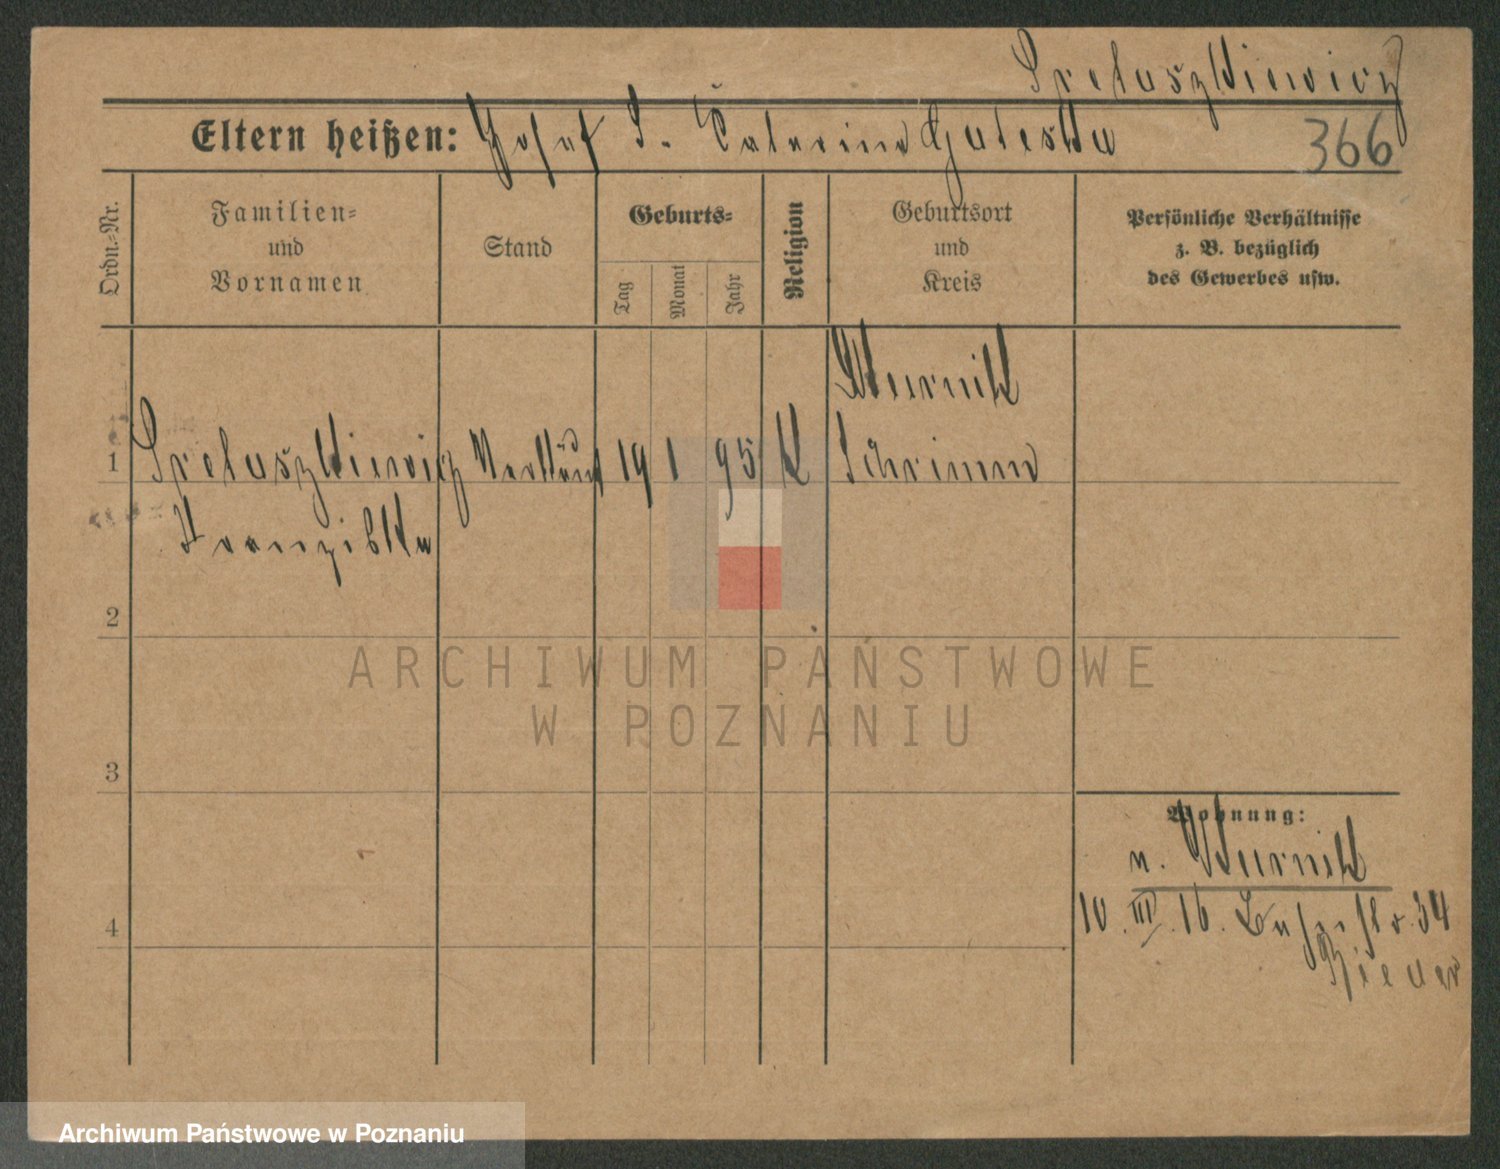 Eltern heißen: Josef S.
366
Ordn.-Nr.
Familien-
und
Vornamen
Stand
Geburts-
Tag
Monat
Jahr
Religion
Geburtsort
und
Kreis
Persönliche Verhältnisse
z. B. bezüglich
des Gewerbes usw.
Kurnik
1
19 1 95 K Schrimm
Franziska
2
3
4
Wohnung:
n. Kurnik
10. III. 16. 34
ARCHIWUM PAŃSTWOWE
W POZNANIU
Archiwum Państwowe w Poznaniu